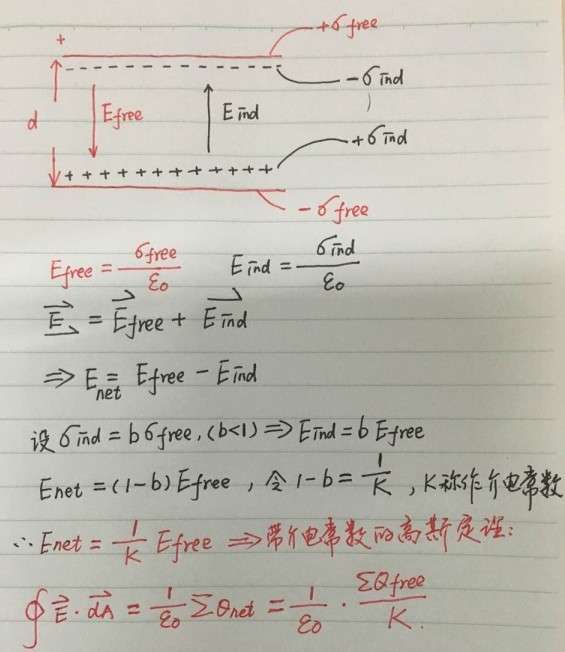 + +σfree
- - - - - - - - - - - - - - - - -σind
d Efree Eind
+σind
+ + + + + + + + + + + + +
-σfree
Efree = σfree/ε₀ Eind = σind/ε₀
E⃗ = E⃗free + E⃗ind
⇒ Enet = Efree - Eind
设 σind = bσfree, (b<1) ⇒ Eind = b Efree
Enet = (1-b) Efree , 令 1-b = 1/K , K称作介电常数
∴ Enet = 1/K Efree ⇒ 带介电常数的高斯定理:
∮E⃗·dA⃗ = 1/ε₀ ΣQnet = 1/ε₀ · ΣQfree/K.